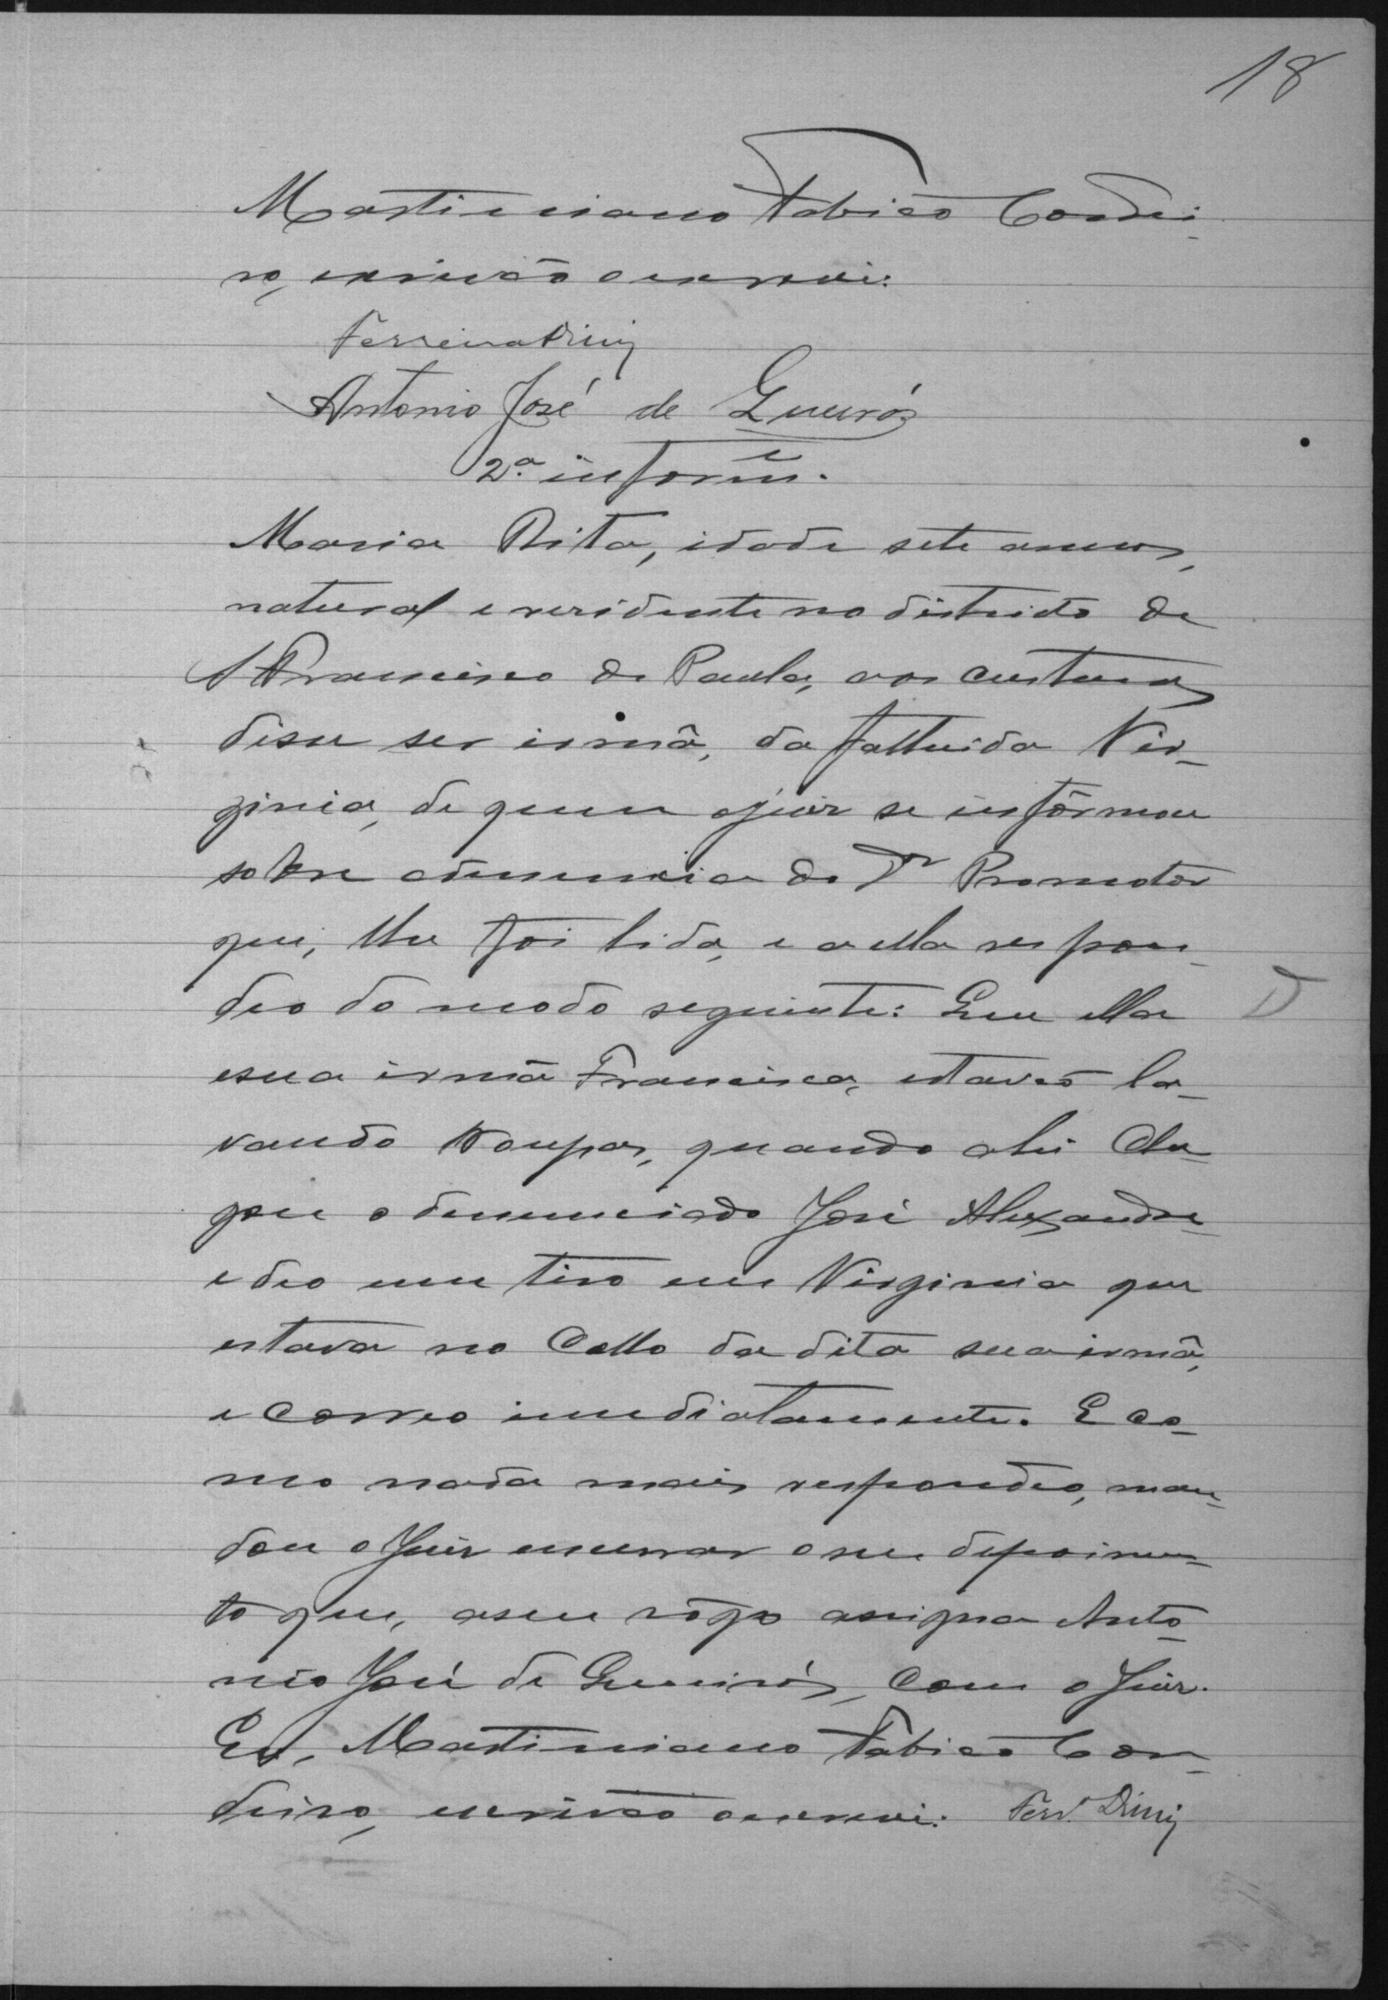 18
Martiniano Fabião Cordei-
ro, escrivão o escrevi.
Ferreira Diniz
Antonio José de Queiróz
2ª inform.
Maria Rita, idade sete annos,
natural e residente no districto de
S Francisco de Paula, aos custumes
disse ser irmã, da fallecida Vir-
ginia, de quem o juiz se informou
sobre a denuncia do Dr Promotor
que, lhe foi lida, e a ella respon-
deo do modo seguinte: Que ella
e sua irmã Francisca, estavão la-
vando roupas, quando ahi che-
gou o denunciado José Alexandre
e deo um tiro em Virginia que
estava no collo da dita sua irmã,
e correo immediatamente. E co-
mo nada mais respondeo, man-
dou o Juiz encerrar o seu depoimen-
to que, a seu rôgo assigna Anto-
nio José de Queiróz, com o Juiz.
Eu, Martiniano Fabião Cor-
deiro, escrivão o escrevi. Ferr.ª Diniz